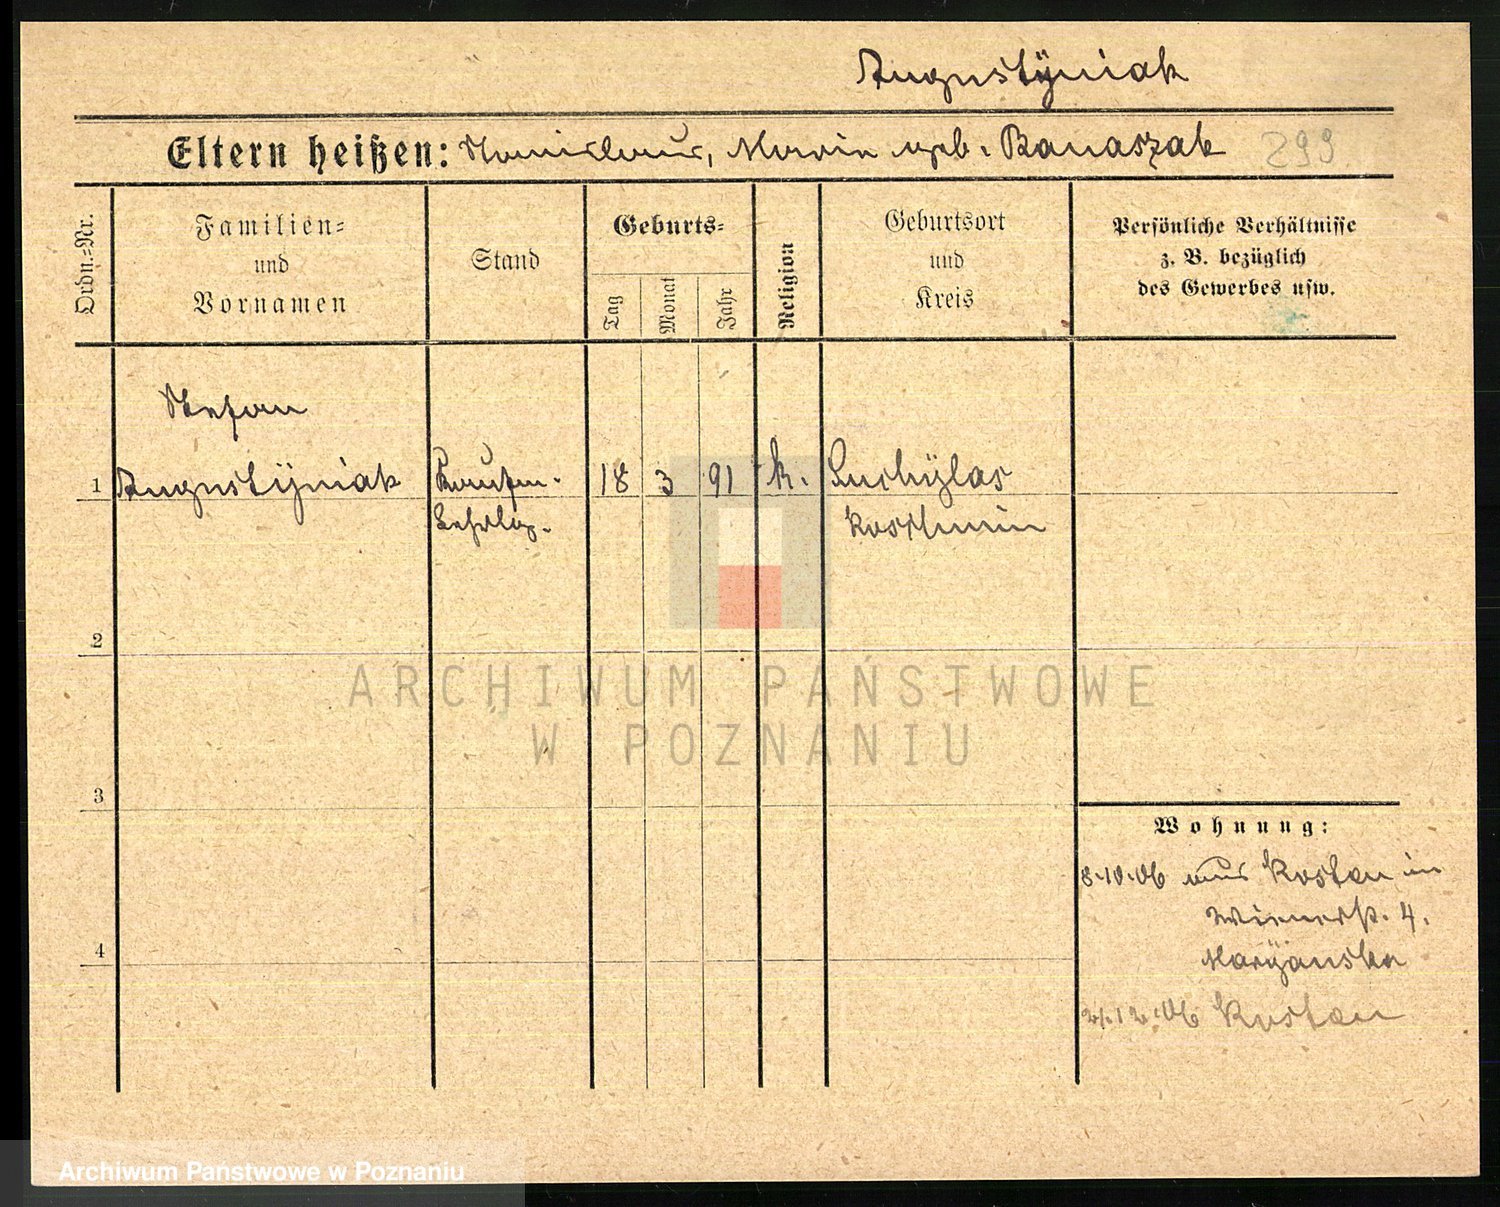 Augustÿniak
Eltern heißen: Stanislaus, Maria geb. Banaszak 299
Ordn.=Nr.
Familien=
und
Vornamen
Stand
Geburts=
Tag
Monat
Jahr
Religion
Geburtsort
und
Kreis
Persönliche Verhältnisse
z. B. bezüglich
des Gewerbes usw.
Stefan
1 Augustÿniak Kaufm. 18 3 91 k. Suchÿlas
Lehrlg. Koschmin
2
3
4
Wohnung:
8.10.06 aus Kosten in
Wienerstr. 4.
Maryanska
21.12.06 Kosten
ARCHIWUM PAŃSTWOWE
W POZNANIU
Archiwum Państwowe w Poznaniu